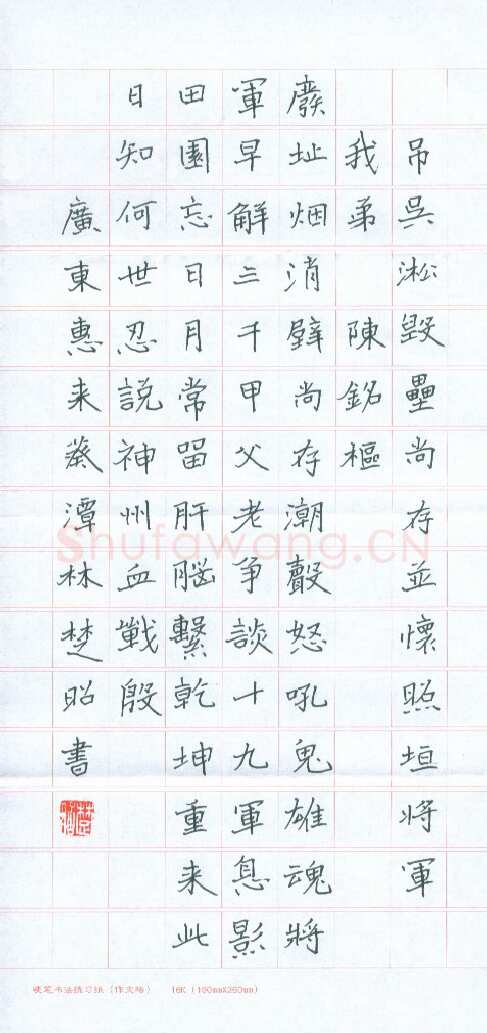 吊吳淞毀壘尚存並懷照垣將軍
我弟 陳銘樞
廢址烟消壁尚存潮聲怒吼鬼雄魂將
軍早解三千甲父老爭談十九軍息影
田園忘日月常留肝腦繫乾坤重来此
日知何世忍說神州血戰殷
廣東惠来葵潭林楚昭書
Shufawang.CN
硬笔书法练习纸（作文格） 16K（190mmX260mm）